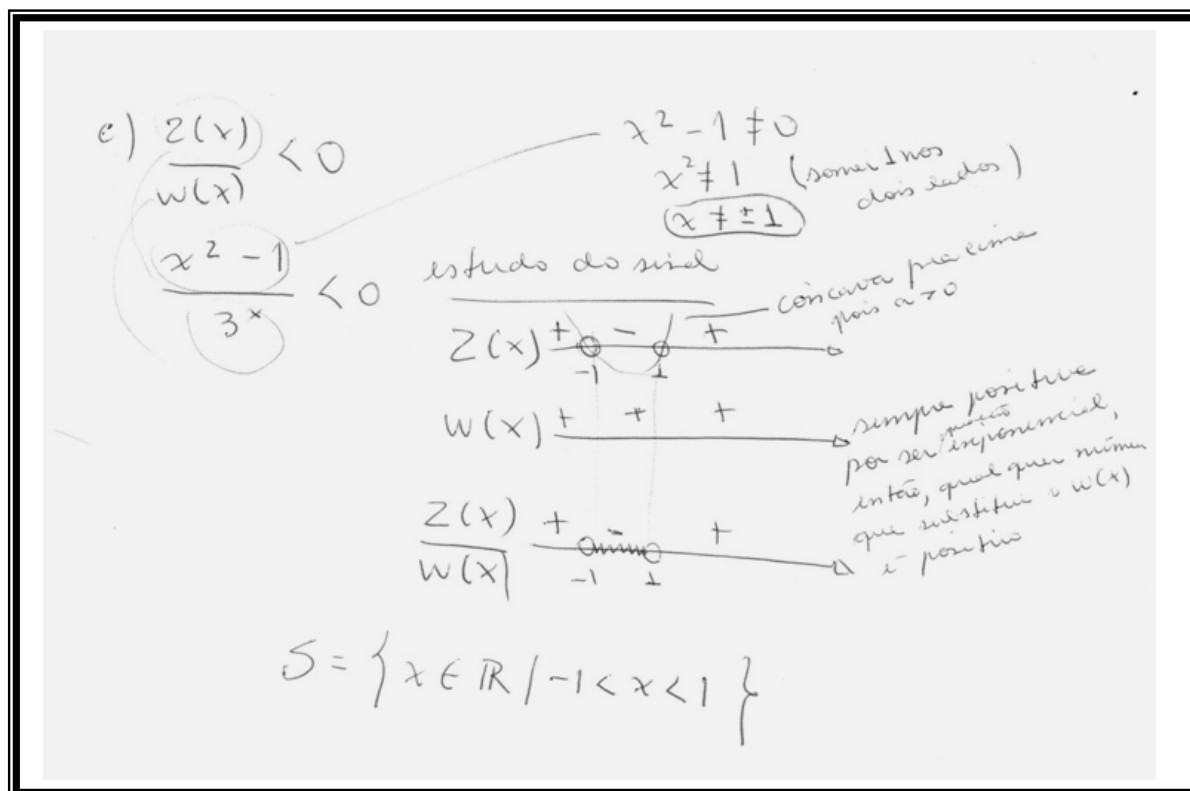 e) Z(x)/W(x) < 0
x² - 1 ≠ 0
x² ≠ 1 (somei 1 nos dois lados)
x ≠ ± 1
(x² - 1)/3ˣ < 0
estudo do sinal
côncava pra cima
pois a > 0
Z(x) + - +
-1 1
W(x) + + +
sempre positiva
por ser função exponencial,
então, qualquer número
que substitui o W(x)
é positivo
Z(x)/W(x) + - +
-1 1
S = { x ∈ ℝ / -1 < x < 1 }